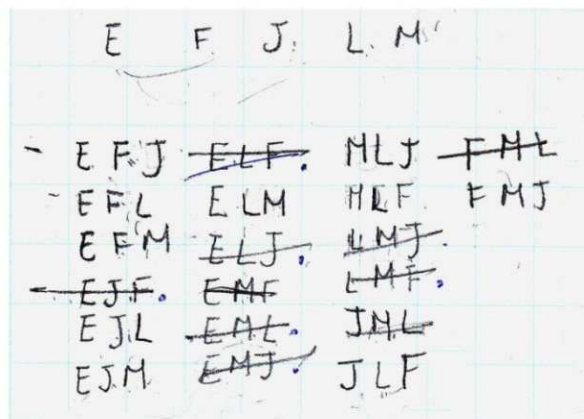 E F J L M
EFJ ELF. MLJ FML
EFL ELM MLF FMJ
EFM ELJ. LMJ.
EJF. EMF LMF.
EJL EML. JML
EJM EMJ. JLF